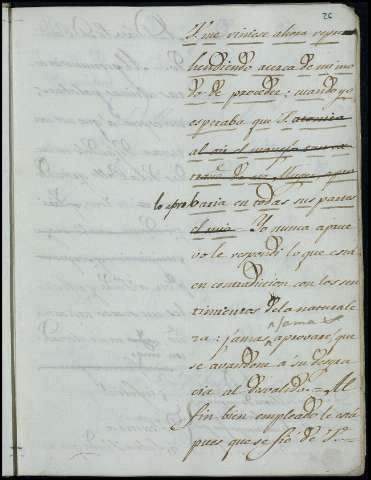 26
S. me viniese ahora repre
hendiendo acerca de mi mo
do de proceder: cuando yo
esperaba que S. atonita
al oir el
lo aprobaria en todas sus partes
el mio. Yo nunca aprue
vo le respondi lo que está
en contradicion con los sen
timientos de la naturale
za: jamas
jamas aprovaré que
se avandone á su desgra
cia al desvalido. = Al
fin bien empleado le está
pues que se fio de S.